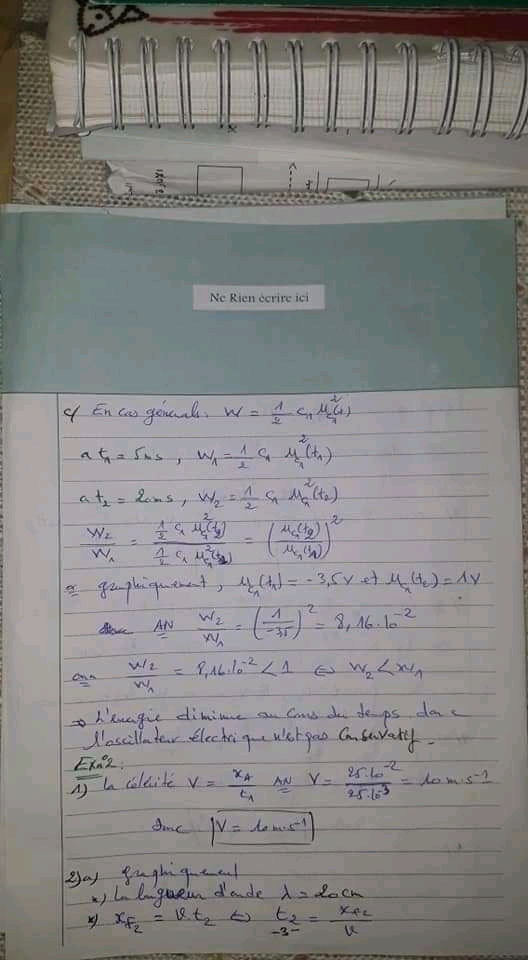 Ne Rien écrire ici
c/ En cas générale: W = 1/2 C₁ u²c₁(t)
à t₁ = 5ms, W₁ = 1/2 C₁ u²c₁(t₁)
à t₂ = 20ms, W₂ = 1/2 C₁ u²c₁(t₂)
W₂/W₁ = (1/2 C₁ u²c₁(t₂))/(1/2 C₁ u²c₁(t₁)) = (uc₁(t₂)/uc₁(t₁))²
graphiquement, uc₁(t₁) = -3,5V et uc₁(t₂) = 1V
AN W₂/W₁ = (1/-3,5)² = 8,16.10⁻²
W₂/W₁ = 8,16.10⁻² < 1 ⇔ W₂ < W₁
⇒ L'énergie diminue au cours du temps donc
l'oscillateur électrique n'est pas conservatif.
Exn°2:
1) la célérité V = xA/t₁ AN V = 25.10⁻²/25.10⁻³ = 10m.s⁻¹
donc V = 10m.s⁻¹
2)a) graphiquement
*) La longueur d'onde λ = 20cm
*) xF₂ = V.t₂ ⇔ t₂ = xF₂/V
-3-